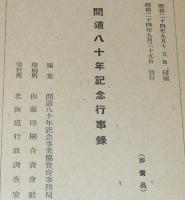 昭和二十四年九月十五日 印刷
昭和二十四年九月二十五日 發行
(非賣品)
開道八十年記念行事錄
編集 開道八十年記念事業協賛會事務局
印刷所 山藤印刷合資會社
發行所 北海道行政調査室